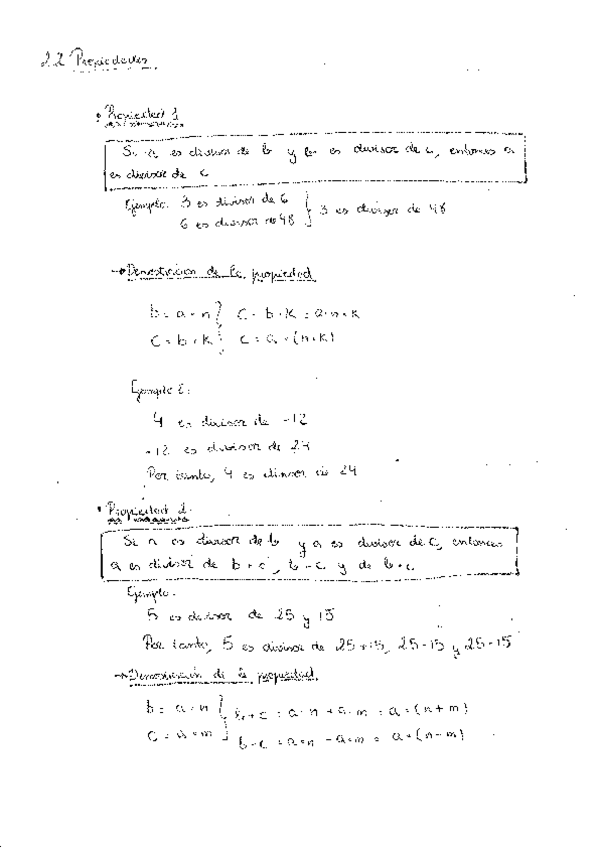 2.2 Propiedades
• Propiedad 1
Si a es divisor de b y b es divisor de c, entonces a
es divisor de c
Ejemplo: 3 es divisor de 6 } 3 es divisor de 48
6 es divisor de 48
→ Demostración de la propiedad
b = a · n } c = b · k = a · n · k
c = b · k } c = a · (n · k)
Ejemplo 2:
4 es divisor de -12
-12 es divisor de 24
Por tanto, 4 es divisor de 24
• Propiedad 2.
Si a es divisor de b y a es divisor de c, entonces
a es divisor de b + c, b - c y de b · c.
Ejemplo.
5 es divisor de 25 y 15
Por tanto, 5 es divisor de 25 + 15, 25 - 15 y 25 · 15
→ Demostración de la propiedad
b = a · n } b + c = a · n + a · m = a · (n + m)
c = a · m } b - c = a · n - a · m = a · (n - m)